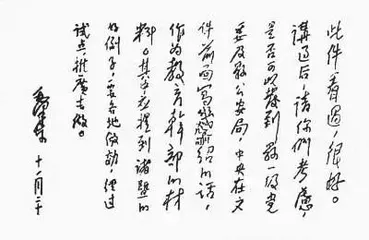 此件看過，很好。
講过后，請你們考慮，
是否可以發到縣一級党
委及縣公安局，中央在文
件前面寫幾句介紹的話，
作为教育幹部的材
料。其中应提到諸暨的
好例子，要各地仿效，經过
試点，推廣去做。
毛澤東
十一月二十